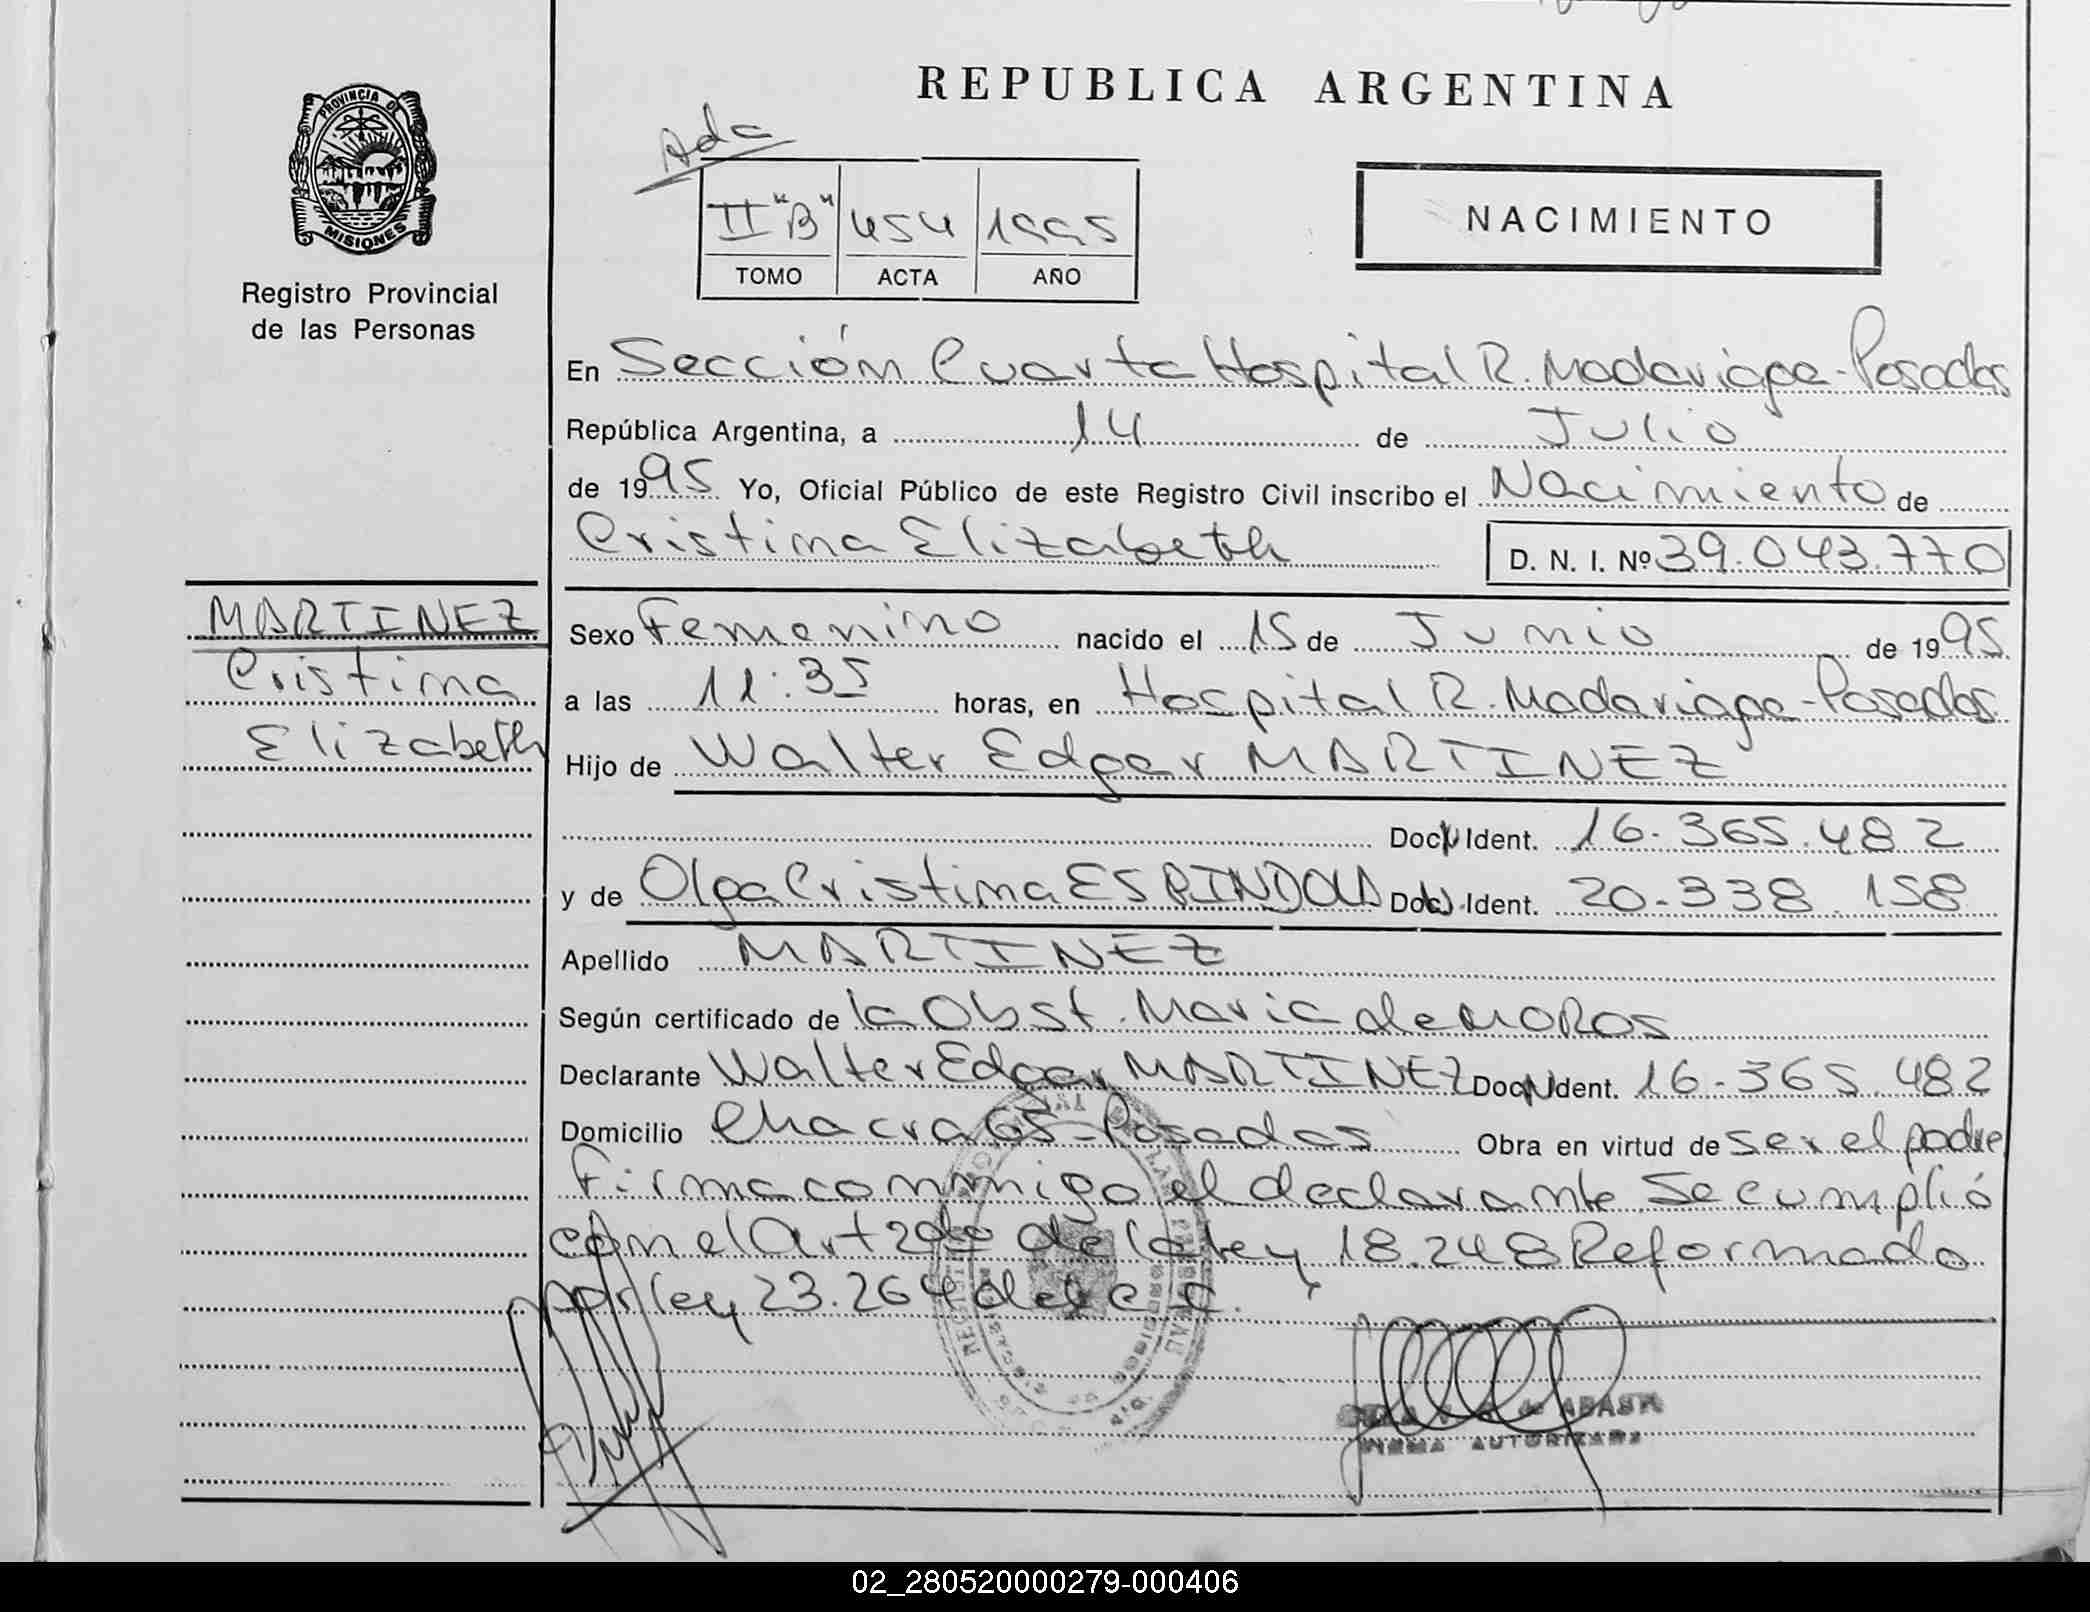 REPUBLICA ARGENTINA
PROVINCIA DE
MISIONES
Registro Provincial
de las Personas
Adc
II "B" 454 1995
TOMO ACTA AÑO
NACIMIENTO
En Sección Cuarta Hospital R. Madariaga-Posadas
República Argentina, a 14 de Julio
de 1995 Yo, Oficial Público de este Registro Civil inscribo el Nacimiento de
Cristina Elizabeth D. N. I. Nº 39.043.770
MARTINEZ
Cristina
Elizabeth
Sexo Femenino nacido el 15 de Junio de 1995
a las 11:35 horas, en Hospital R. Madariaga-Posadas
Hijo de Walter Edgar MARTINEZ
Doc. Ident. 16.365.482
y de Olga Cristina ESPINDOLA Doc. Ident. 20.338.158
Apellido MARTINEZ
Según certificado de la Obst. Maria de MOROS
Declarante Walter Edgar MARTINEZ Doc. Ident. 16.365.482
Domicilio Chacra 65-Posadas Obra en virtud de ser el padre
Firma conmigo el declarante. Se cumplió
con el Art 2do de la ley 18.248 Reformado
por ley 23.264 del C.C.
de ABASTI
FIRMA AUTORIZADA
02_280520000279-000406